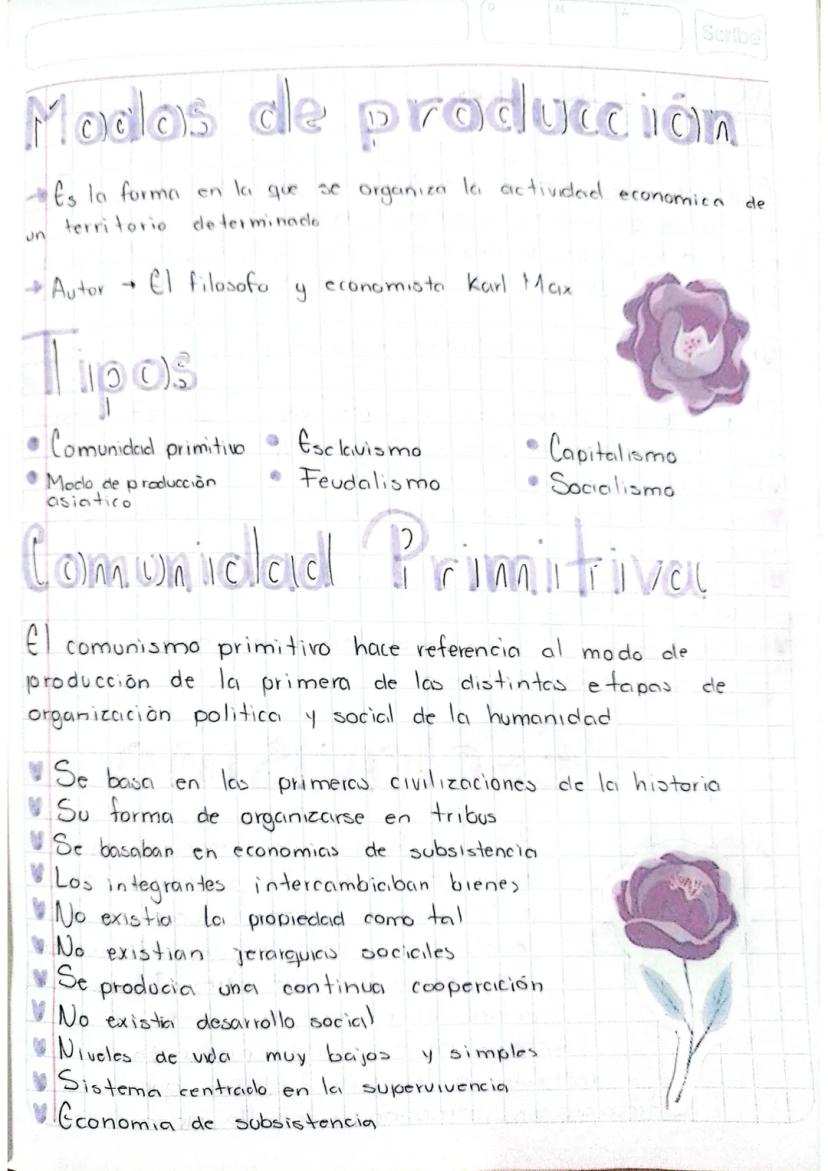 D M A
Scribe
Modos de producción
→ Es la forma en la que se organiza la actividad economica de
un territorio determinado
→ Autor → El filosofo y economista Karl Max
Tipos
• Comunidad primitivo • Esclavismo • Capitalismo
• Modo de producciòn • Feudalismo • Socialismo
asiatico
Comunidad Primitiva
El comunismo primitivo hace referencia al modo de
producción de la primera de las distintas etapas de
organizaciòn politica y social de la humanidad
Se basa en las primeras civilizaciones de la historia
Su forma de organizarse en tribus
Se basaban en economias de subsistencia
Los integrantes intercambiaban bienes
No existia la propiedad como tal
No existian jerarquias sociales
Se producia una continua cooperación
No existia desarrollo social
Niveles de vida muy bajos y simples
Sistema centrado en la supervivencia
Economia de subsistencia